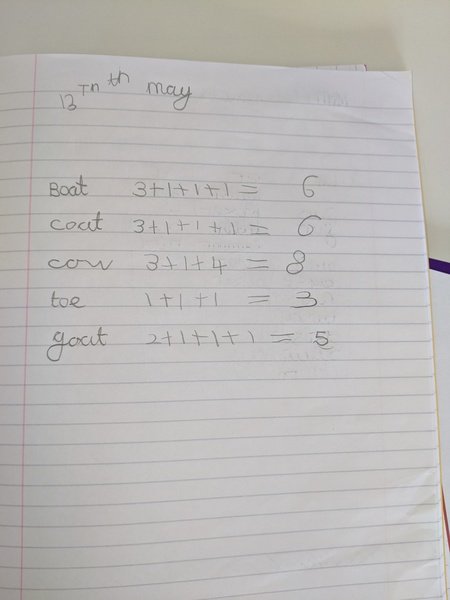 13 Th th may
Boat 3+1+1+1= 6
coat 3+1+1+1= 6
cow 3+1+4 = 8
toe 1+1+1 = 3
goat 2+1+1+1 = 5